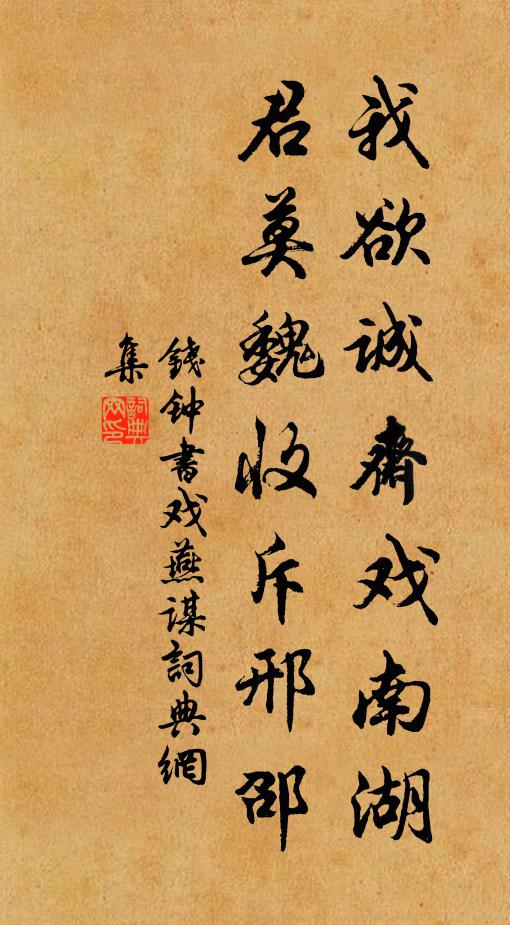 我欲诚斋戏南湖
君莫魏收斥邢邵
錢钟書戏燕谋詞典網
集
詞典网印